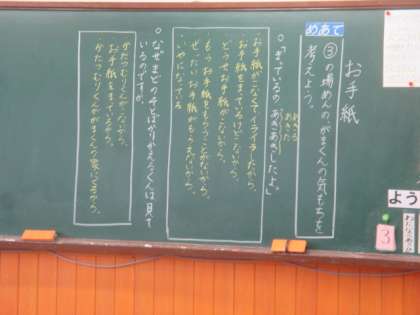 お手紙
めあて
③の場めんの、がまくんの気もちを
考えよう。
○「まっているの
あきあきしたよ。」
あきる
あきた
・お手紙がこなくてイライラしたから。
・お手紙をまっているけどこないから。
・どうせお手紙がこないから。
・もうお手紙をもらうことがないから。
・ぜったいお手紙がもらえないから。
・いやになっている
○なぜまどのそとばかりかえるくんは見て
いるのですか。
・かたつむりくんがこないから。
・お手紙をまっているから。
・かたつむりくんががまくんの家にくるから。
よう
3